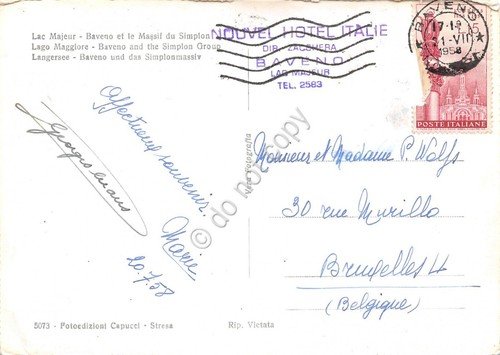 Lac Majeur - Baveno et le Massif du Simplon
Lago Maggiore - Baveno and the Simplon Group
Langersee - Baveno und das Simplonmassiv
NOUVEL HOTEL ITALIE
DIR. ZACCHERA
BAVENO
LAC MAJEUR
TEL. 2583
BAVENO
17-18
1958
POSTE ITALIANE
Affectueux souvenirs.
Marie
20.7.58
Monsieur et Madame P. Wolfs
30 rue Murillo
Bruxelles 4
(Belgique)
Vera Fotografia
© do not copy
5073 - Fotoedizioni Capucci - Stresa
Rip. Vietata